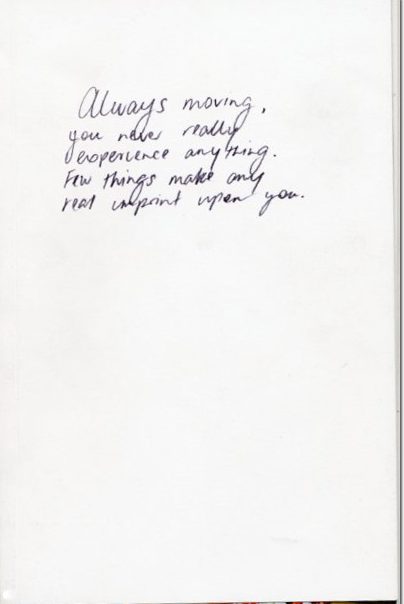 Always moving,
you never really
experience anything.
Few things make any
real imprint upon you.